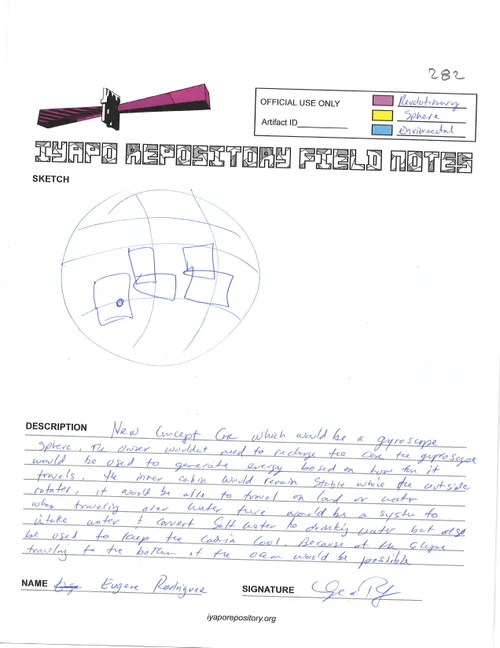 282
OFFICIAL USE ONLY
Revolutionary
Artifact ID
Sphere
Enviornmental
IYAPO REPOSITORY FIELD NOTES
SKETCH
DESCRIPTION
New Concept Car which would be a gyroscope
Sphere. The Driver wouldnt need to recharge the car the gyroscope
would be used to generate energy based on how far it
travels. The inner cabin would remain stable while the outside
rotates, it would be able to travel on land or water
when traveling over water there would be a system to
intake water & convert Salt water to drinking water but also
be used to keep the cabin cool. Because of the shape
traveling to the bottom of the ocean would be possible
NAME Eugene Rodriguez
SIGNATURE
iyaporepository.org